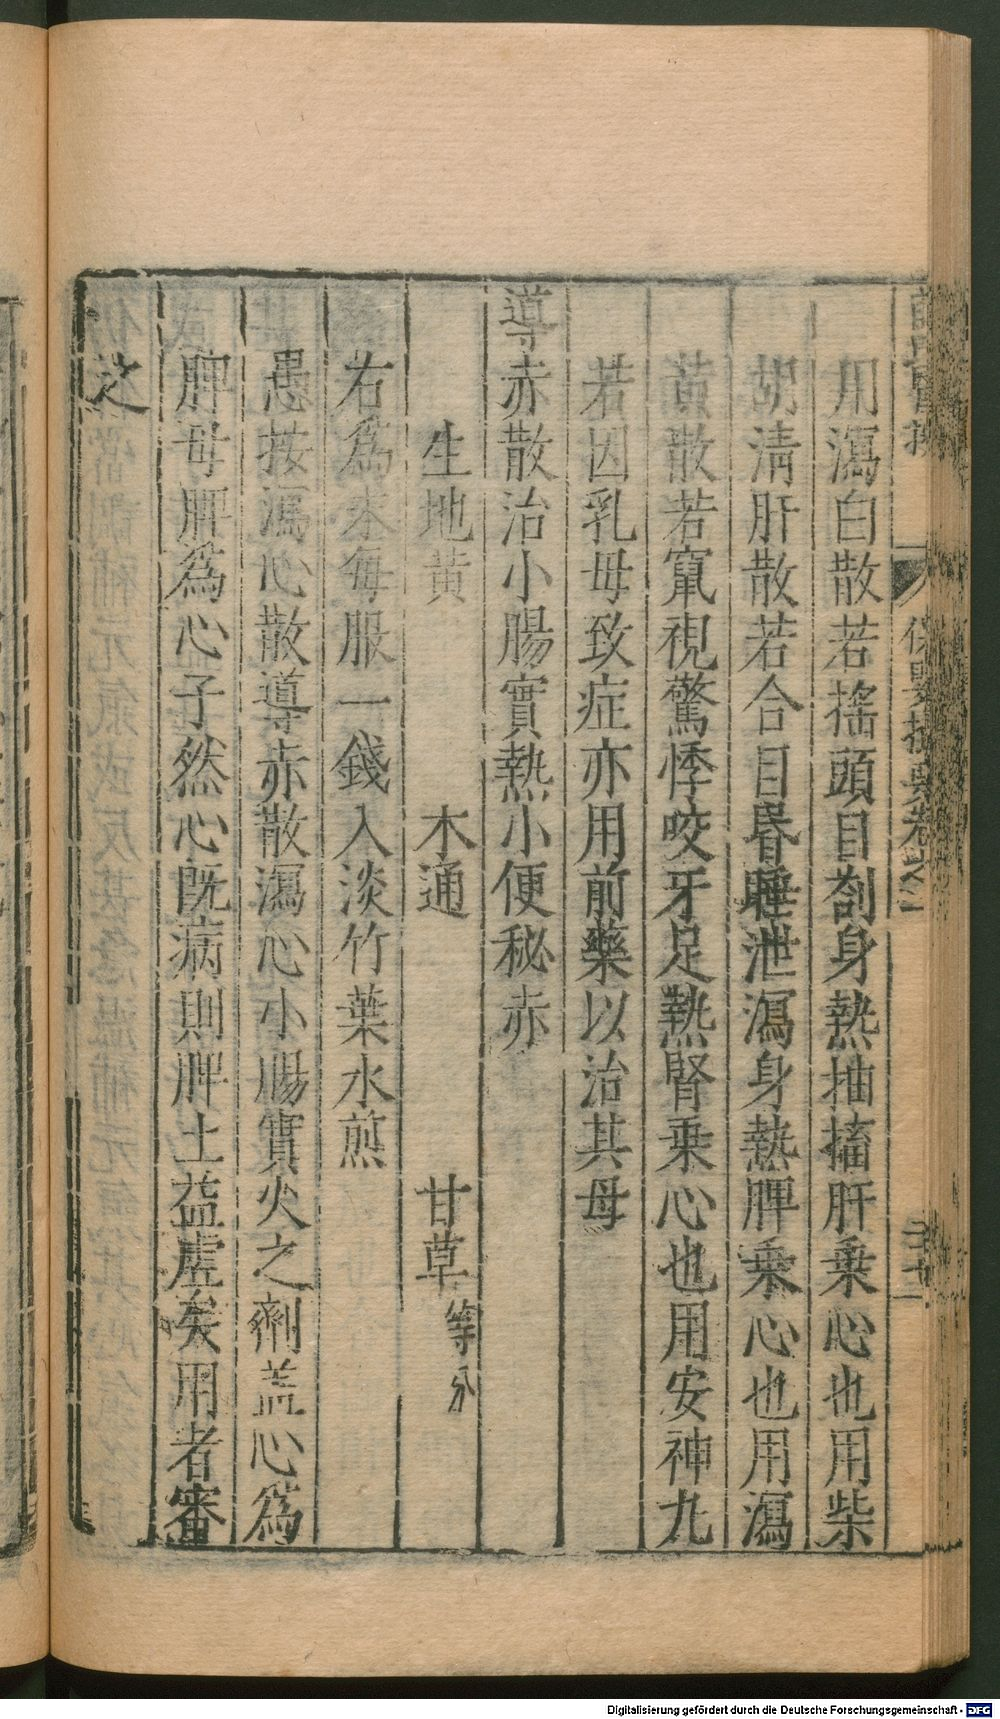 保嬰撮要卷之一
用瀉白散若搖頭目劄身熱抽搐肝乗心也用柴
胡清肝散若合目昬睡泄瀉身熱脾乗心也用瀉
黄散若竄視驚悸咬牙足熱腎乗心也用安神丸
若因乳母致症亦用前藥以治其母
導赤散治小腸實熱小便秘赤
生地黄 木通 甘草等分
右為末每服一錢入淡竹葉水煎
愚按瀉心散導赤散瀉心小腸實火之劑盖心為
脾母脾為心子然心既病則脾土益虚矣用者審
之
Digitalisierung gefördert durch die Deutsche Forschungsgemeinschaft - DFG